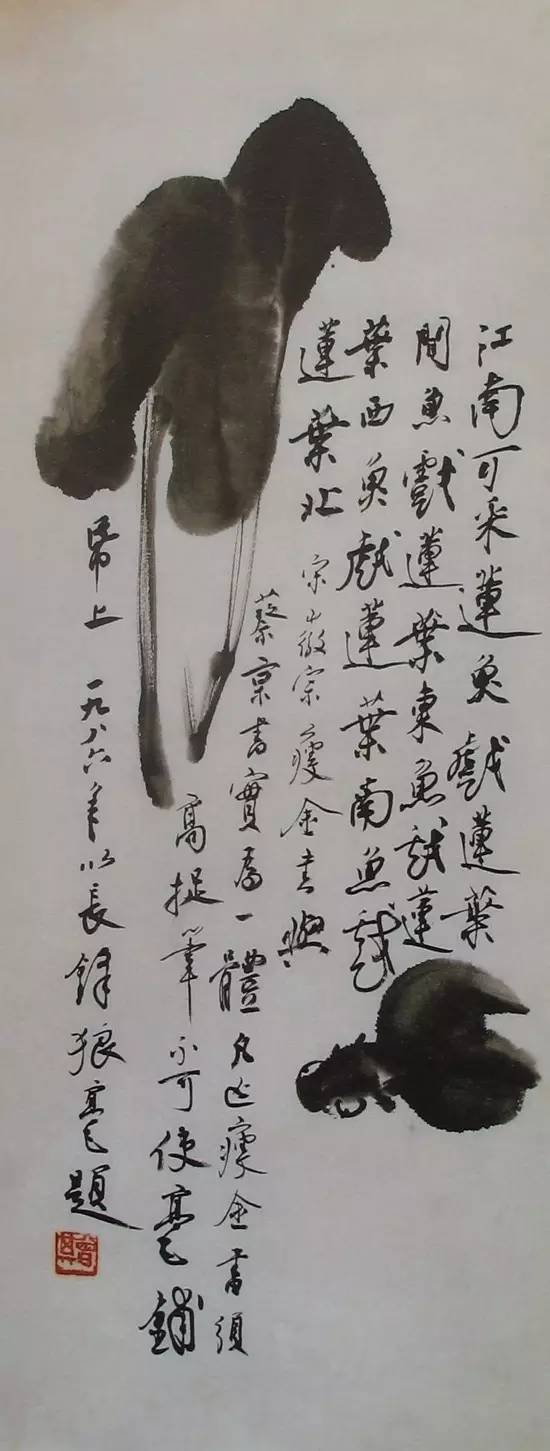 江南可采蓮魚戲蓮葉
間魚戲蓮葉東魚戲蓮
葉西魚戲蓮葉南魚戲
蓮葉北 宋徽宗瘦金書與
蔡京書實爲一體凡瘦金書須
高捉筆不可使毫鋪
帋上 一九八六年以長鋒狼毫題